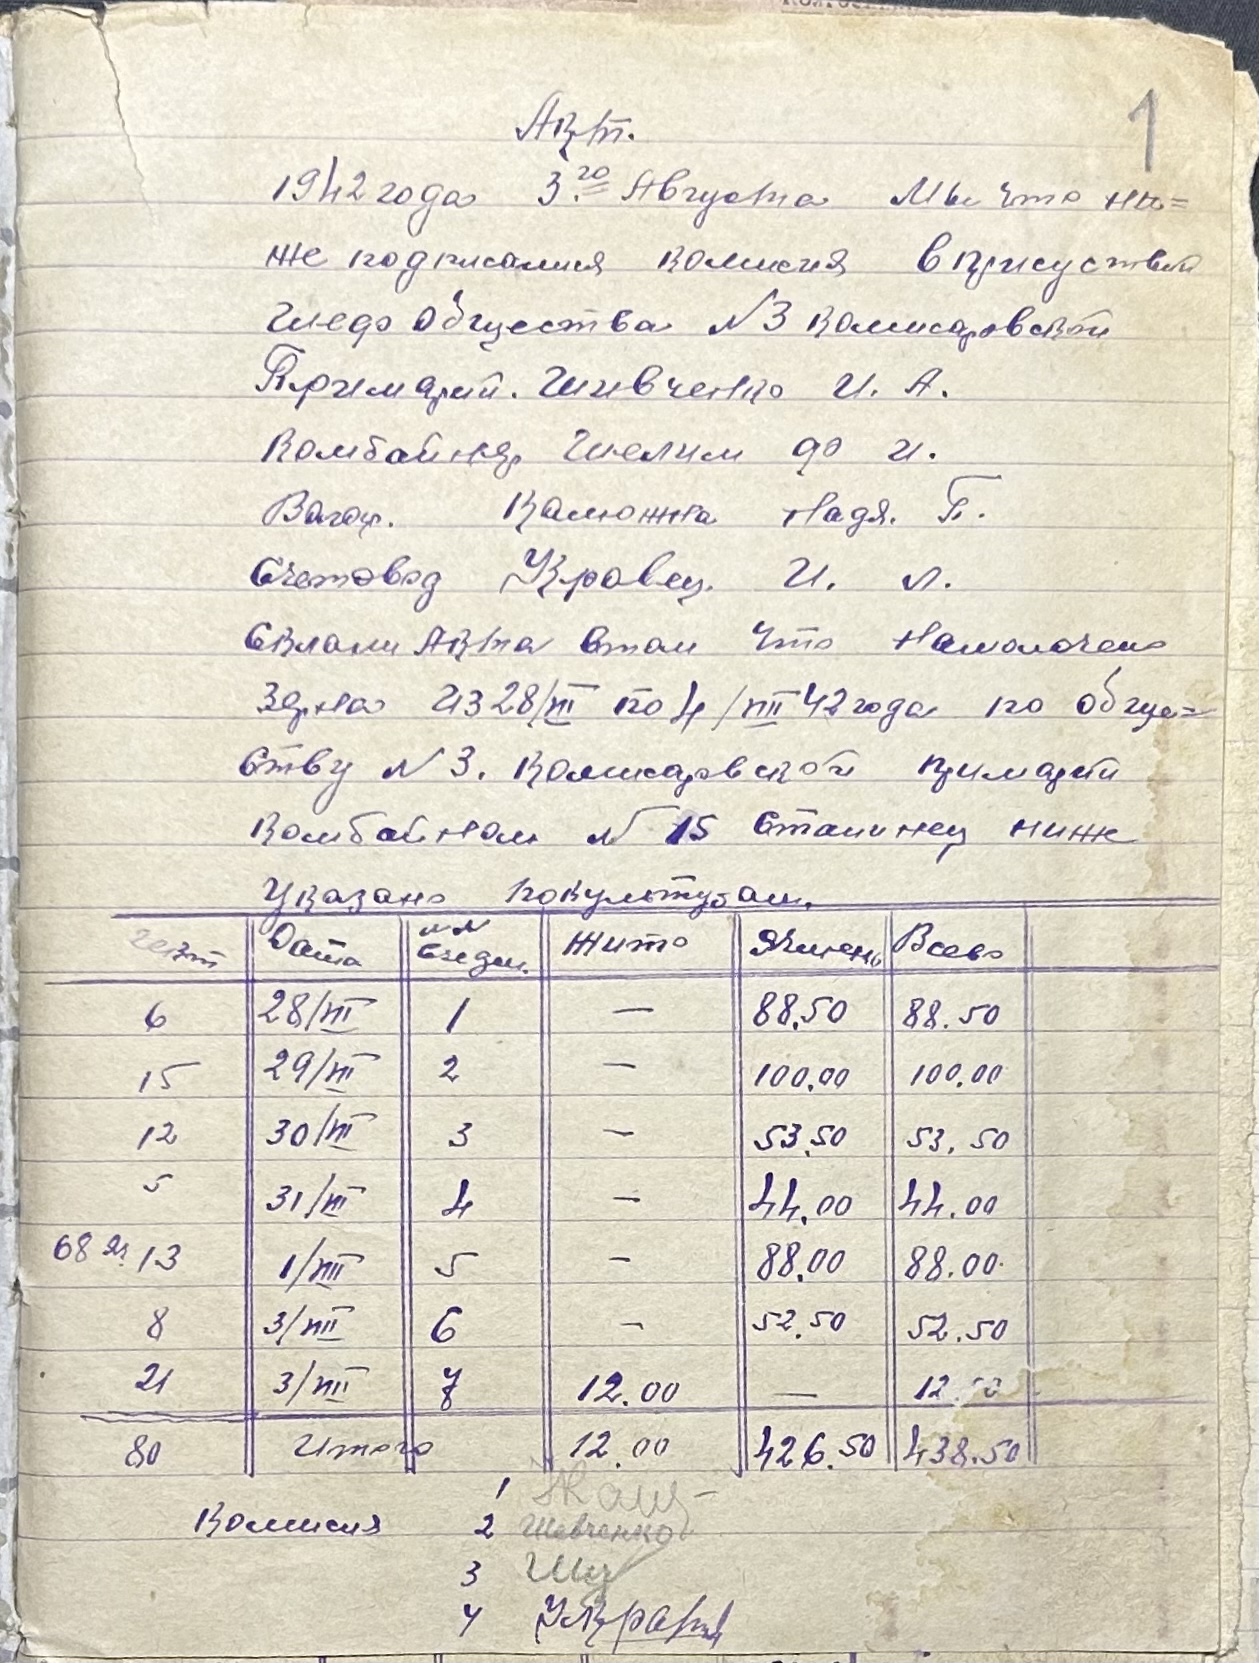 1
Акт.
1942 года 3го Августа Мы что ни=
же подписалися комисия в присуствии
шефо общества №3 комисаровской
Примарии. Шивченко И. А.
Комбайнер Шелим до И.
Вагов. Калюжна Надя. П.
Счетовод Укравец И. Л.
Склали Акта втом что Намолочено
Зерна из 28/VII по 4/VIII 42 года по обще=
ству №3. Комисаровской примарии
комбайном № 15 Сталинец ниже
указано по культурам.
Дата №№ Сведен. Жито Ячмень Всево
6 28/VII 1 — 88.50 88.50
15 29/VII 2 — 100.00 100.00
12 30/VII 3 — 53.50 53.50
5 31/VII 4 — 44.00 44.00
68 га 13 1/VIII 5 — 88.00 88.00
8 3/VIII 6 — 52.50 52.50
21 3/VIII 7 8 12.00 — 12.00
80 Итого 12.00 426.50 438.50
1
Комисия 2 Шевченко
3
4 Укравец